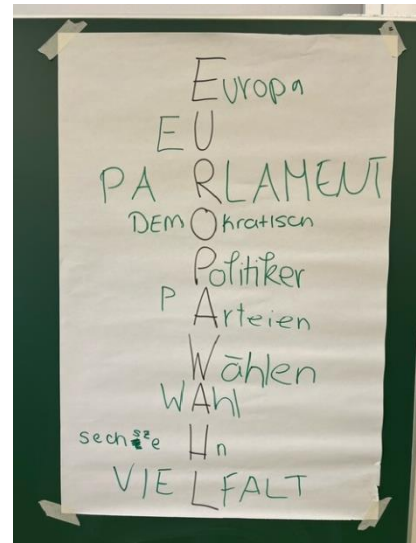 Europa
EU
PARLAMENT
DEMOkratisch
Politiker
PArteien
Wählen
WAhl
sechszeHn
VIELFALT